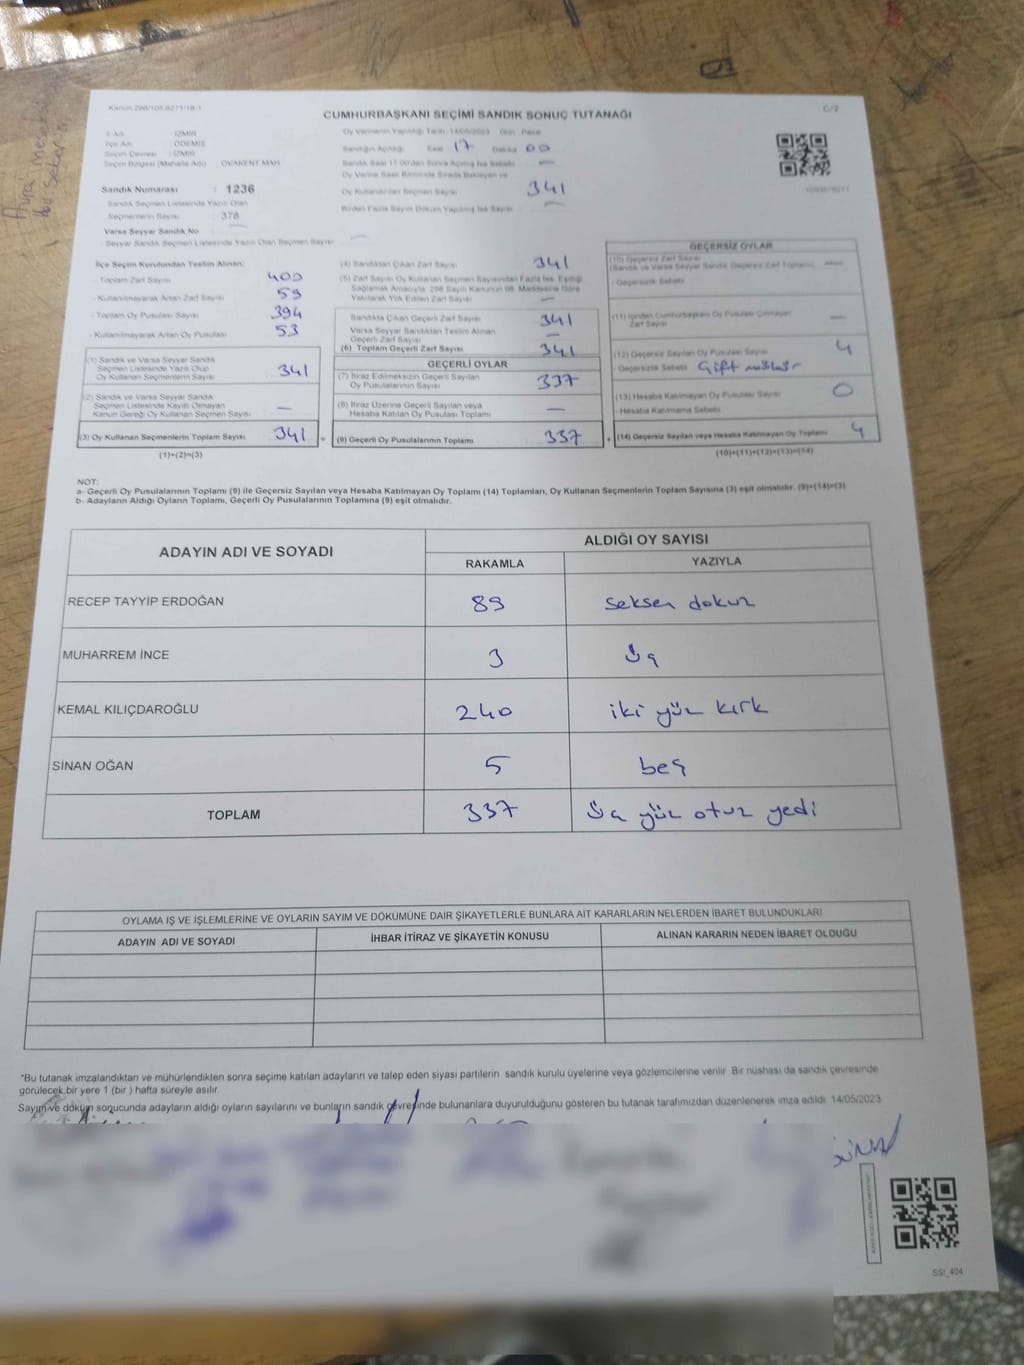 Kanun 298/105.6271/18-1
CUMHURBAŞKANI SEÇİMİ SANDIK SONUÇ TUTANAĞI
C/2
İl Adı : İZMİR
İlçe Adı : ÖDEMİŞ
Seçim Çevresi : İZMİR
Seçim Bölgesi (Mahalle Adı) : OVAKENT MAH.
Sandık Numarası : 1236
Sandık Seçmen Listesinde Yazılı Olan
Seçmenlerin Sayısı : 378
Varsa Seyyar Sandık No : —
Seyyar Sandık Seçmen Listesinde Yazılı Olan Seçmen Sayısı —
Oy Vermenin Yapıldığı Tarih : 14/05/2023 Gün : Pazar
Sandığın Açıldığı Saat 17 Dakika 00
Sandık Saat 17.00'den Sonra Açılmış İse Sebebi —
Oy Verme Saati Bitiminde Sırada Bekleyen ve
Oy Kullandırılan Seçmen Sayısı 341
Birden Fazla Sayım Döküm Yapılmış İse Sayısı —
İlçe Seçim Kurulundan Teslim Alınan;
Toplam Zarf Sayısı 400
- Kullanılmayarak Artan Zarf Sayısı 59
- Toplam Oy Pusulası Sayısı 394
- Kullanılmayarak Artan Oy Pusulası 53
(1) Sandık ve Varsa Seyyar Sandık
Seçmen Listesinde Yazılı Olup
Oy Kullanan Seçmenlerin Sayısı 341
(2) Sandık ve Varsa Seyyar Sandık
Seçmen Listesinde Kayıtlı Olmayan
Kanun Gereği Oy Kullanan Seçmen Sayısı —
(3) Oy Kullanan Seçmenlerin Toplam Sayısı 341 =
(1)+(2)=(3)
(4) Sandıktan Çıkan Zarf Sayısı 341
(5) Zarf Sayısı Oy Kullanan Seçmen Sayısından Fazla İse, Eşitliği
Sağlamak Amacıyla, 298 Sayılı Kanunun 98. Maddesine Göre
Yakılarak Yok Edilen Zarf Sayısı —
Sandıkta Çıkan Geçerli Zarf Sayısı 341
Varsa Seyyar Sandıktan Teslim Alınan
Geçerli Zarf Sayısı —
(6) Toplam Geçerli Zarf Sayısı 341
GEÇERLİ OYLAR
(7) İtiraz Edilmeksizin Geçerli Sayılan
Oy Pusulalarının Sayısı 337
(8) İtiraz Üzerine Geçerli Sayılan veya
Hesaba Katılan Oy Pusulası Toplamı —
(9) Geçerli Oy Pusulalarının Toplamı 337 +
GEÇERSİZ OYLAR
(10) Geçersiz Zarf Sayısı
(Sandık ve Varsa Seyyar Sandık Geçersiz Zarf Toplamı) —
- Geçersizlik Sebebi
(11) İçinden Cumhurbaşkanı Oy Pusulası Çıkmayan
Zarf Sayısı —
(12) Geçersiz Sayılan Oy Pusulası Sayısı 4
- Geçersizlik Sebebi Çift mühür
(13) Hesaba Katılmayan Oy Pusulası Sayısı 0
- Hesaba Katılmama Sebebi
(14) Geçersiz Sayılan veya Hesaba Katılmayan Oy Toplamı 4
(10)+(11)+(12)+(13)=(14)
NOT:
a- Geçerli Oy Pusulalarının Toplamı (9) ile Geçersiz Sayılan veya Hesaba Katılmayan Oy Toplamı (14) Toplamları, Oy Kullanan Seçmenlerin Toplam Sayısına (3) eşit olmalıdır. (9)+(14)=(3)
b- Adayların Aldığı Oyların Toplamı, Geçerli Oy Pusulalarının Toplamına (9) eşit olmalıdır.
ADAYIN ADI VE SOYADI
ALDIĞI OY SAYISI
RAKAMLA YAZIYLA
RECEP TAYYİP ERDOĞAN 89 seksen dokuz
MUHARREM İNCE 3 üç
KEMAL KILIÇDAROĞLU 240 iki yüz kırk
SİNAN OĞAN 5 beş
TOPLAM 337 üç yüz otuz yedi
OYLAMA İŞ VE İŞLEMLERİNE VE OYLARIN SAYIM VE DÖKÜMÜNE DAİR ŞİKAYETLERLE BUNLARA AİT KARARLARIN NELERDEN İBARET BULUNDUKLARI
ADAYIN ADI VE SOYADI İHBAR İTİRAZ VE ŞİKAYETİN KONUSU ALINAN KARARIN NEDEN İBARET OLDUĞU
*Bu tutanak imzalandıktan ve mühürlendikten sonra seçime katılan adayların ve talep eden siyasi partilerin sandık kurulu üyelerine veya gözlemcilerine verilir. Bir nüshası da sandık çevresinde
görülecek bir yere 1 (bir ) hafta süreyle asılır.
Sayım ve döküm sonucunda adayların aldığı oyların sayılarını ve bunların sandık çevresinde bulunanlara duyurulduğunu gösteren bu tutanak tarafımızdan düzenlenerek imza edildi. 14/05/2023
SSI_404